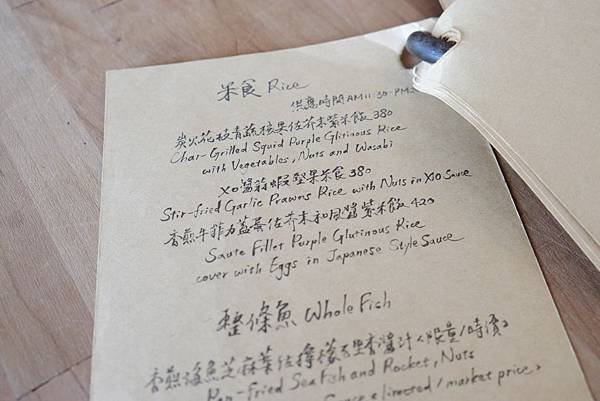 米食 Rice
供應時間AM11:30-PM2
炭火花枝青蔬核果佐芥末紫米飯 380
Char-Grilled Squid Purple Glitinous Rice
with Vegetables, Nuts and Wasabi
XO醬蒜蝦堅果米食 380
Stir-fried Garlic Prawns Rice with Nuts in XO Sauce
香煎牛菲力蓋蛋佐芥末和風醬紫米飯 420
Saute Fillet Purple Glutinous Rice
cover with Eggs in Japanese Style Sauce
整條魚 Whole Fish
香煎海魚芝麻葉佐檸檬百里香醬汁<限量/時價>
Pan-fried Sea Fish and Rocket, Nuts
Sauce <limited/market price>